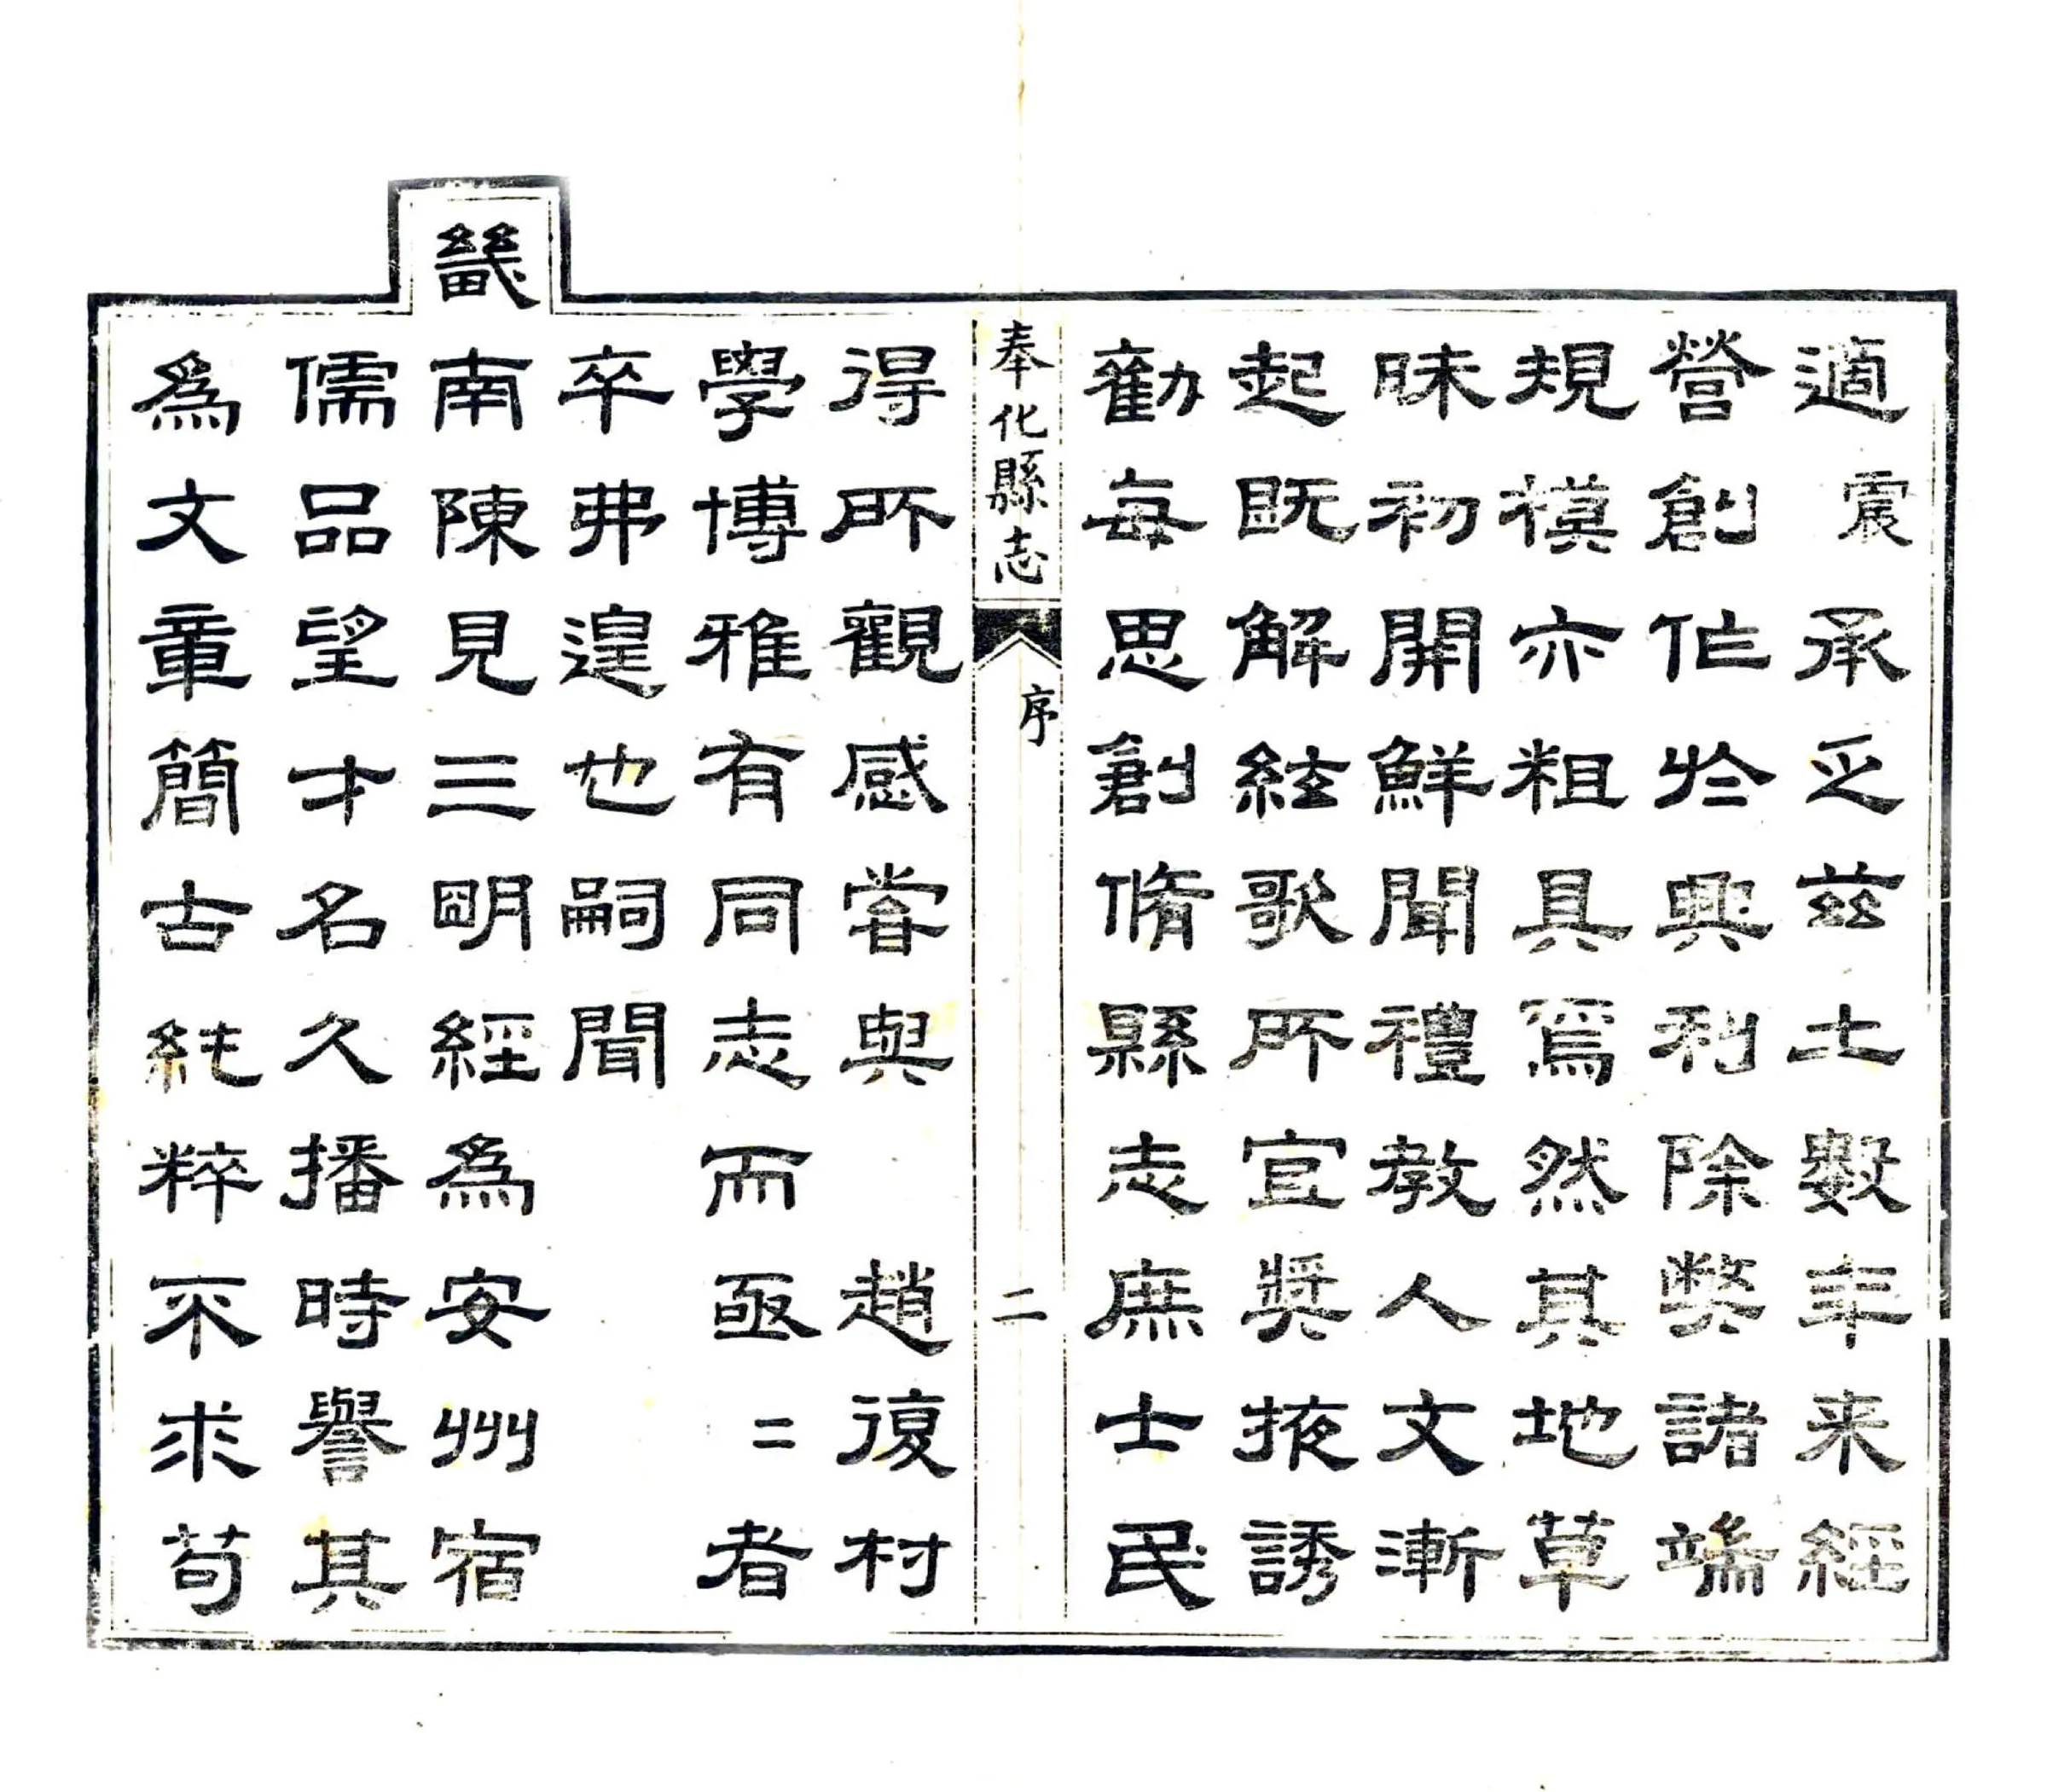 適震承乏茲土數年来經
營創作於興利除弊諸端
規模亦粗具焉然其地草
昧初開鮮聞禮教人文漸
起既解絃歌所宜奬掖誘
勸每思創脩縣志庶士民
奉化縣志
序
二
得所觀感嘗與趙復村
學博雅有同志而亟二者
卒弗遑也嗣聞
畿南陳見三明經為安州宿
儒品望才名久播時譽其
為文章簡古純粹不求苟